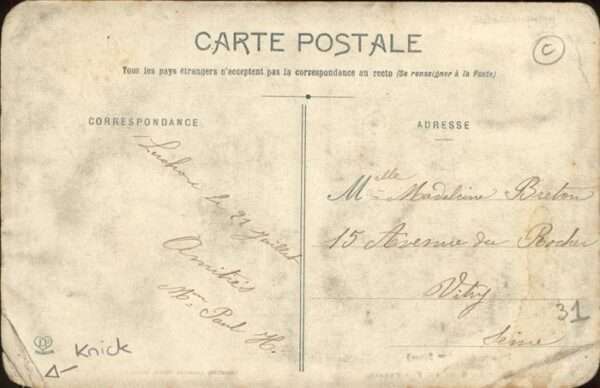 CARTE POSTALE
C
Tous les pays étrangers n'acceptent pas la correspondance au recto (Se renseigner à la Poste)
CORRESPONDANCE
Luchon le 21 Juillet
Amitiés
Mme Paul H.
ADRESSE
Mlle Madeleine Breton
15 Avenue du Rocher
Vitry
Seine
31
Knick